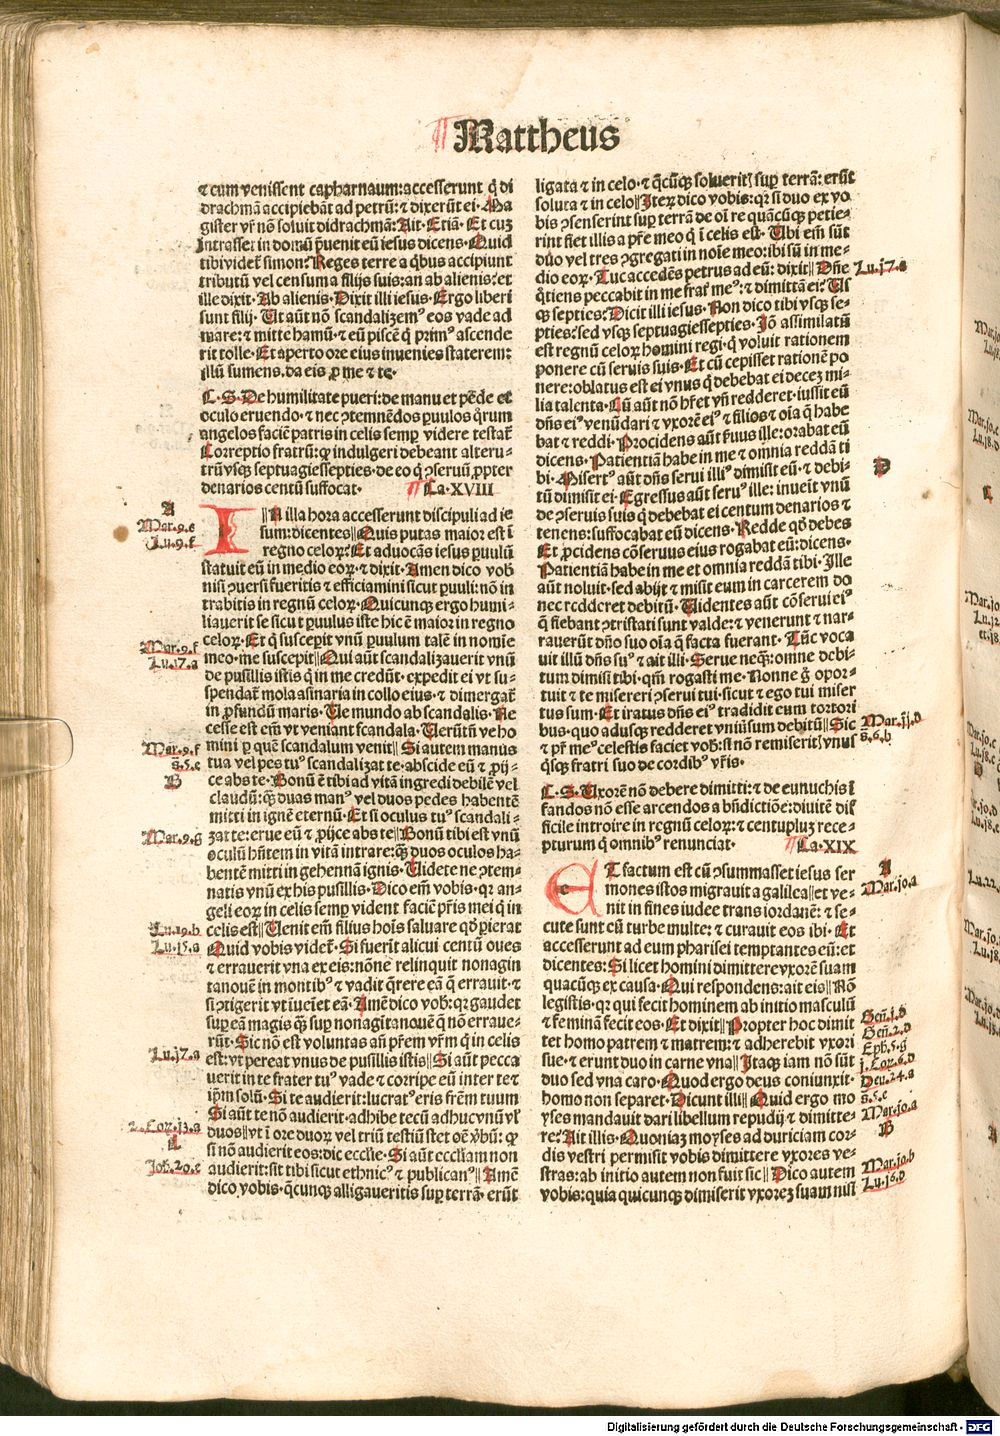 Mattheus
⁊ cum venissent capharnaum: accesserunt q̇ di
drachmā accipiebāt ad petrū: ⁊ dixerūt ei. Ma
gister vr̄ nō soluit didrachmā: Ait. Etiā. Et cuz
intrasset in domū p̱uenit eū iesus dicens. Quid
tibi videt᷑ simon: Reges terre a q̇bus accipiunt
tributū vel censum a filijs suis: an ab alienis: et
ille dixit. Ab alienis. Dixit illi iesus. Ergo liberi
sunt filij. Ut aūt nō scandalizemꝰ eos vade ad
mare: ⁊ mitte hamū: ⁊ eū piscē q̇ primꝰ ascende
rit tolle. Et aperto ore eius inuenies staterem:
illū sumens. da eis ꝓ me ⁊ te.
C. S. De humilitate pueri: de manu et pēde et
oculo eruendo. ⁊ nec ꝯtemnēdos ꝑuulos q̇rum
angelos faciē patris in celis semꝑ videre testat᷑
Correptio fratrū: ꝙ indulgeri debeant alteru-
trū vsqꝫ septuagiessepties. de eo q̇ ꝯseruū ꝓpter
denarios centū suffocat. Ca. XVIII
IN illa hora accesserunt discipuli ad ie
sum: dicentes|| Quis putas maior est ī
regno celoꝝ: Et aduocās iesus ꝑuulū
statuit eū in medio eoꝝ. ⁊ dixit. Amen dico vob᷑
nisi ꝯuersi fueritis ⁊ efficiamini sicut ꝑuuli: nō in
trabitis in regnū celoꝝ. Quicunqꝫ ergo humi-
liauerit se sicut ꝑuulus iste hic ē maior in regno
celoꝝ. Et q̇ susceꝑit vnū ꝑuulum talē in noīe
meo. me suscepit|| Qui aūt scandalizauerit vnū
de pusillis istis q̇ in me credūt. expedit ei vt su-
spendat᷑ mola asinaria in collo eius. ⁊ dimergat᷑
in ꝓfundū maris. Ue mundo ab scandalis. Ne
cesse est em̄ vt veniant scandala. Uerūtn̄ ve ho
mini ꝑ quē scandalum venit|| Si autem manus
tua vel pes tuꝰ scandalizat te. abscide eū ⁊ ꝓij-
ce abs te. Bonū ē tibi ad vitā ingredi debilē vel
claudū: q̄ꝫ duas manꝰ vel duos pedes habentē
mitti in ignē eternū. Et si oculus tuꝰ scandali-
zat te: erue eū ⁊ ꝓijce abs te|| Bonū tibi est vnū
oculū hn̄tem in vitā intrare: q̄ꝫ duos oculos ha-
bentē mitti in gehennā ignis. Uidete ne ꝯtem-
natis vnū ex his pusillis. Dico em̄ vobis. qꝛ an-
geli eoꝝ in celis semꝑ vident faciē pr̄is mei q̇ in
celis est|| Uenit em̄ filius hoīs saluare qd̓ ꝑierat
Quid vobis videt᷑. Si fuerit alicui centū oues
⁊ errauerit vna ex eis: nōne relinquit nonagin
tanouē in montibꝰ ⁊ vadit q̄rere eā q̄ errauit. ⁊
si ꝯtigerit vt īueīet eā. Amē dico vob᷑: qꝛ gaudet
suꝑ eā magis q̄ꝫ suꝑ nonagītanouē q̄ nō erraue-
rūt. Sic nō est voluntas an̄ pr̄em vr̄m q̇ in celis
est: vt pereat vnus de pusillis istis|| Si aūt pecca
uerit in te frater tuꝰ vade ⁊ corripe eū inter te ⁊
ip̄m solū. Si te audierit: lucratꝰ eris fr̄em tuum
Si aūt te nō audierit. adhibe tecū adhuc vnū vꝉ
duos|| vt ī ore duoꝝ vel triū testiū stet oē v̓bū: ꝙ
si nō audierit eos: dic eccl̄ie. Si aūt eccl̄iam non
audierit: sit tibi sicut ethnicꝰ ⁊ publicanꝰ|| Amē
dico vobis. q̄cunqꝫ alligaueritis suꝑ terrā. erūt
ligata ⁊ in celo. ⁊ q̄cūqꝫ solueritꝭ suꝑ terrā: erūt
soluta ⁊ in celo|| Iteꝝ dico vobis: qꝛ si duo ex vo
bis ꝯsenserint suꝑ terrā de oī re quācūqꝫ petie-
rint fiet illis a pr̄e meo q̇ ī celis est. Ubi em̄ sūt
duo vel tres ꝯgregati in noīe meo: ibi sū in me-
dio eoꝝ. Tūc accedēs petrus ad eū: dixit|| Dn̄e
q̇tiens peccabit in me frat᷑ meꝰ: ⁊ dimittā ei: Us
qꝫ septies: Dicit illi iesus. Non dico tibi vsqꝫ se-
pties: sed vsqꝫ septuagiessepties. Iō assimilatū
est regnū celoꝝ homini regi. q̇ voluit rationem
ponere cū seruis suis. Et cū cepisset rationē po
nere: oblatus est ei vnus q̇ debebat ei decez mi-
lia talenta. Cū aūt nō hr̄et vn̄ redderet. iussit eū
dn̄s eiꝰ venūdari ⁊ vxorē eiꝰ ⁊ filios ⁊ oīa q̄ habe
bat ⁊ reddi. Procidens aūt ẜuus ille: orabat eū
dicens. Patientiā habe in me ⁊ omnia reddā ti
bi. Misertꝰ aūt dn̄s serui illiꝰ dimisit eū. ⁊ debi-
tū dimisit ei. Egressus aūt seruꝰ ille: inueīt vnū
de ꝯseruis suis q̇ debebat ei centum denarios ⁊
tenens: suffocabat eū dicens. Redde qd̓ debes
Et ꝓcidens cōseruus eius rogabat eū: dicens.
Patientiā habe in me et omnia reddā tibi. Ille
aūt noluit. sed abijt ⁊ misit eum in carcerem do
nec redderet debitū. Uidentes aūt cōserui eiꝰ
q̄ fiebant ꝯtristati sunt valde: ⁊ venerunt ⁊ nar-
rauerūt dn̄o suo oīa q̄ facta fuerant. Tūc voca
uit illū dn̄s suꝰ ⁊ ait illi. Serue neqꝫ: omne debi-
tum dimisi tibi. qm̄ rogasti me. Nonne g̊ opor-
tuit ⁊ te misereri ꝯserui tui. sicut ⁊ ego tui miser
tus sum. Et iratus dn̄s eiꝰ tradidit eum tortori
bus. quo adusqꝫ redderet vniūsum debitū|| Sic
⁊ pr̄ meꝰ celestis faciet vob᷑: si nō remiseritꝭ vnus
q̇sqꝫ fratri suo de cordibꝰ vr̄is.
C. S. Uxorē nō debere dimitti: ⁊ de eunuchis ī
fandos nō esse arcendos a bn̄dictiōe: diuitē dif
ficile introire in regnū celoꝝ: ⁊ centupluz rece-
pturum q̇ omnibꝰ renunciat. Ca. XIX
ET factum est cū ꝯsummasset iesus ser
mones istos migrauit a galilea ⁊ ve-
nit in fines iudee trans iordanē: ⁊ se-
cute sunt eū turbe multe: ⁊ curauit eos ibi. Et
accesserunt ad eum pharisei temptantes eū: et
dicentes: Si licet homini dimittere vxorē suam
quacūqꝫ ex causa. Qui respondens: ait eis|| Nō
legistis. qꝛ qui fecit hominem ab initio masculū
⁊ feminā fecit eos. Et dixit|| Propter hoc dimit
tet homo patrem ⁊ matrem: ⁊ adherebit vxori
sue. ⁊ erunt duo in carne vna|| Itaqꝫ iam nō sūt
duo sed vna caro. Quod ergo deus coniunxit.
homo non separet. Dicunt illi|| Quid ergo mo
yses mandauit dari libellum repudij ⁊ dimitte-
re: Ait illis. Quoniaz moyses ad duriciam cor-
dis vestri permisit vobis dimittere vxores ve-
stras: ab initio autem non fuit sic|| Dico autem
vobis: quia quicunqꝫ dimiserit vxorez suam nisi
A
Mar.9.e
Lu.9.f
Mar.9.f
Lu.17.a
Mar.9.f
s̄.5.e
B
Mar.9.g
Lu.19.b
Lu.15.a
Lu.17.a
2.Coꝛ.13.a
C
Joh.20.e
Lu.17.a
D
Mar.11.d
s̄.6.b
A
Mar.10.a
Gen̄.1.d
Gen̄.2.d
Eph.5.g
1.Coꝛ.6.d
Deu.24.a
s̄.5.e
Mar.10.a
B
Mar.10.b
Lu.16.d
Digitalisierung gefördert durch die Deutsche Forschungsgemeinschaft - DFG